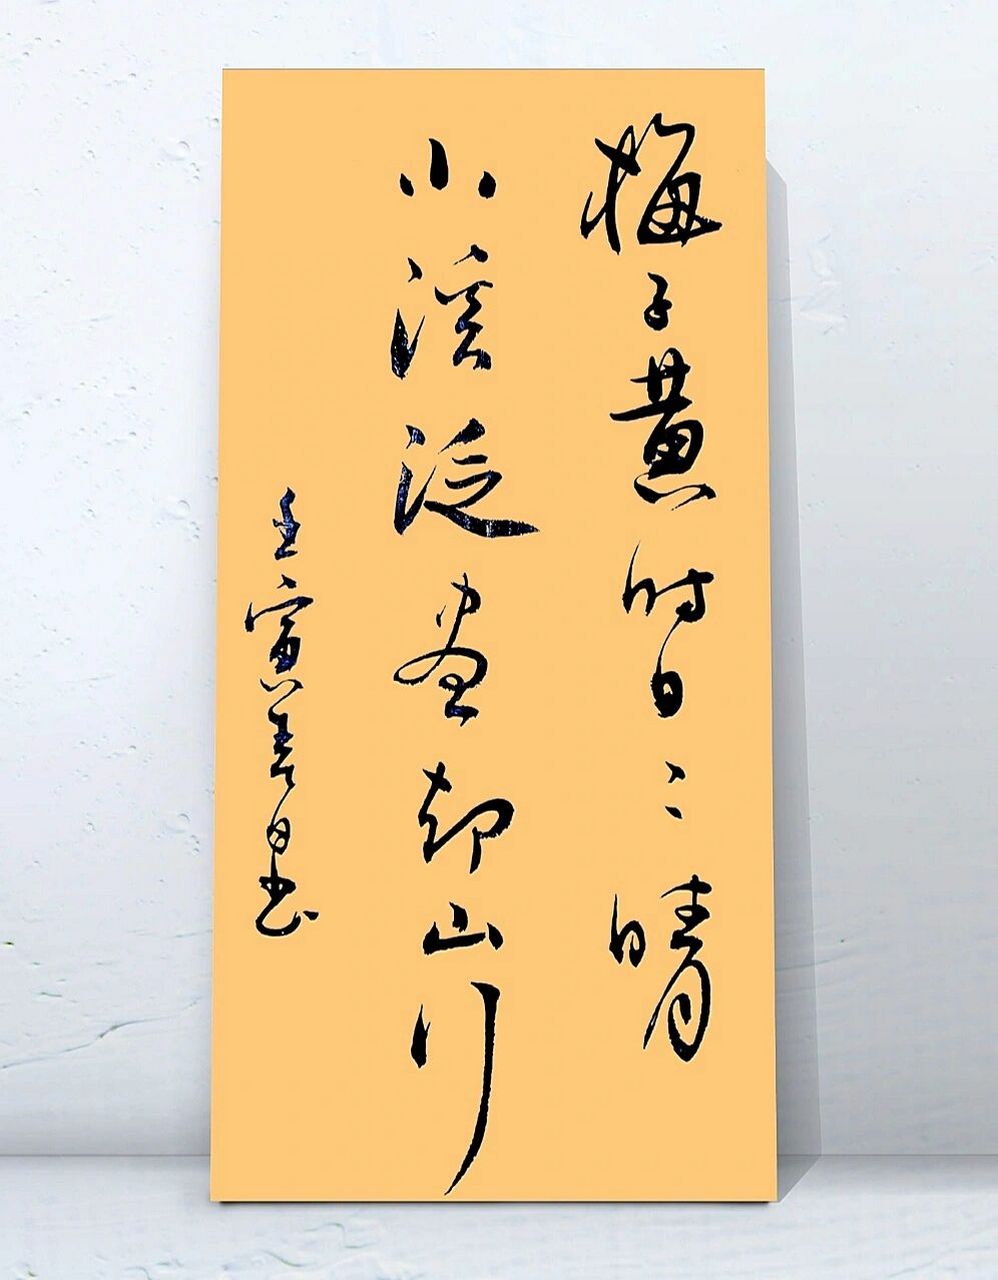 梅子黄时日々晴
小溪泛尽却山行
壬寅 书